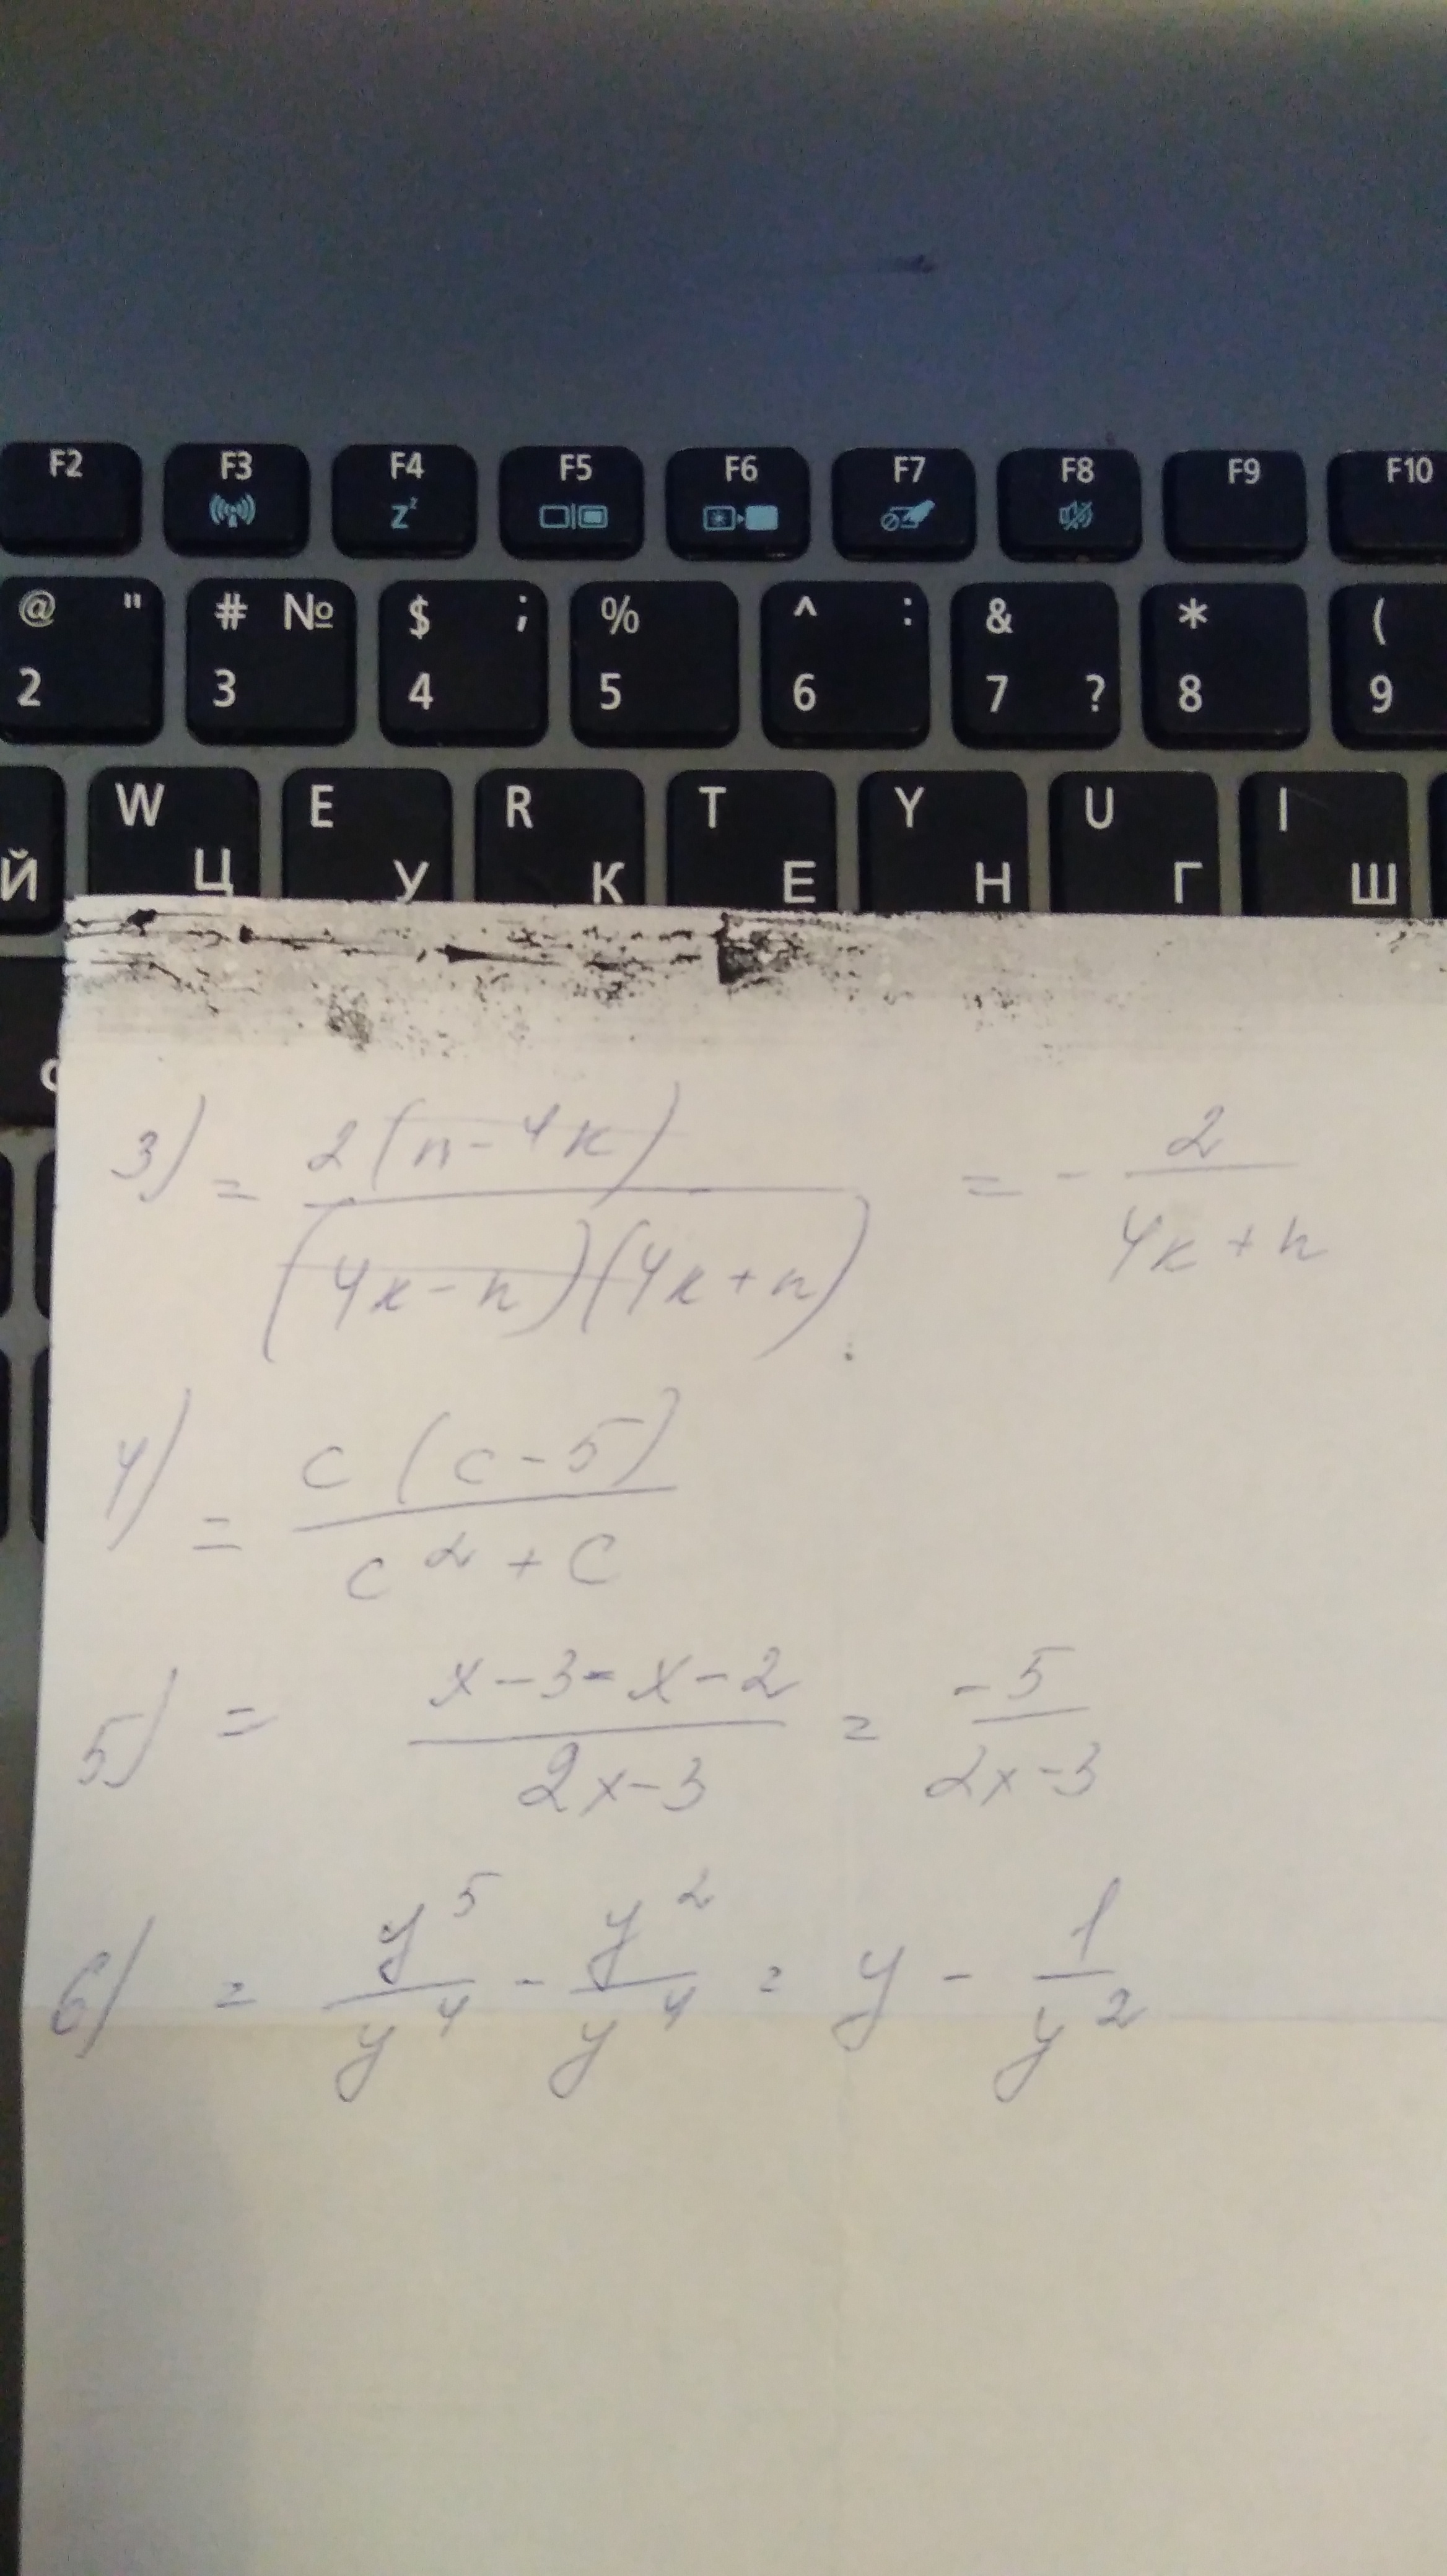 F2 F3 F4 F5 F6 F7 F8 F9 F10
Zz
@ " # № $ ; % ^ : & * (
2 3 4 5 6 7 ? 8 9
W E R T Y U I
Й Ц У К Е Н Г Ш
3) = 2(n-4k) / (4k-n)(4k+n) = - 2 / 4k+n
4) = c(c-5) / c² + c
5) = x-3-x-2 / 2x-3 = -5 / 2x-3
6) = y⁵ / y⁴ - y² / y⁴ = y - 1 / y²